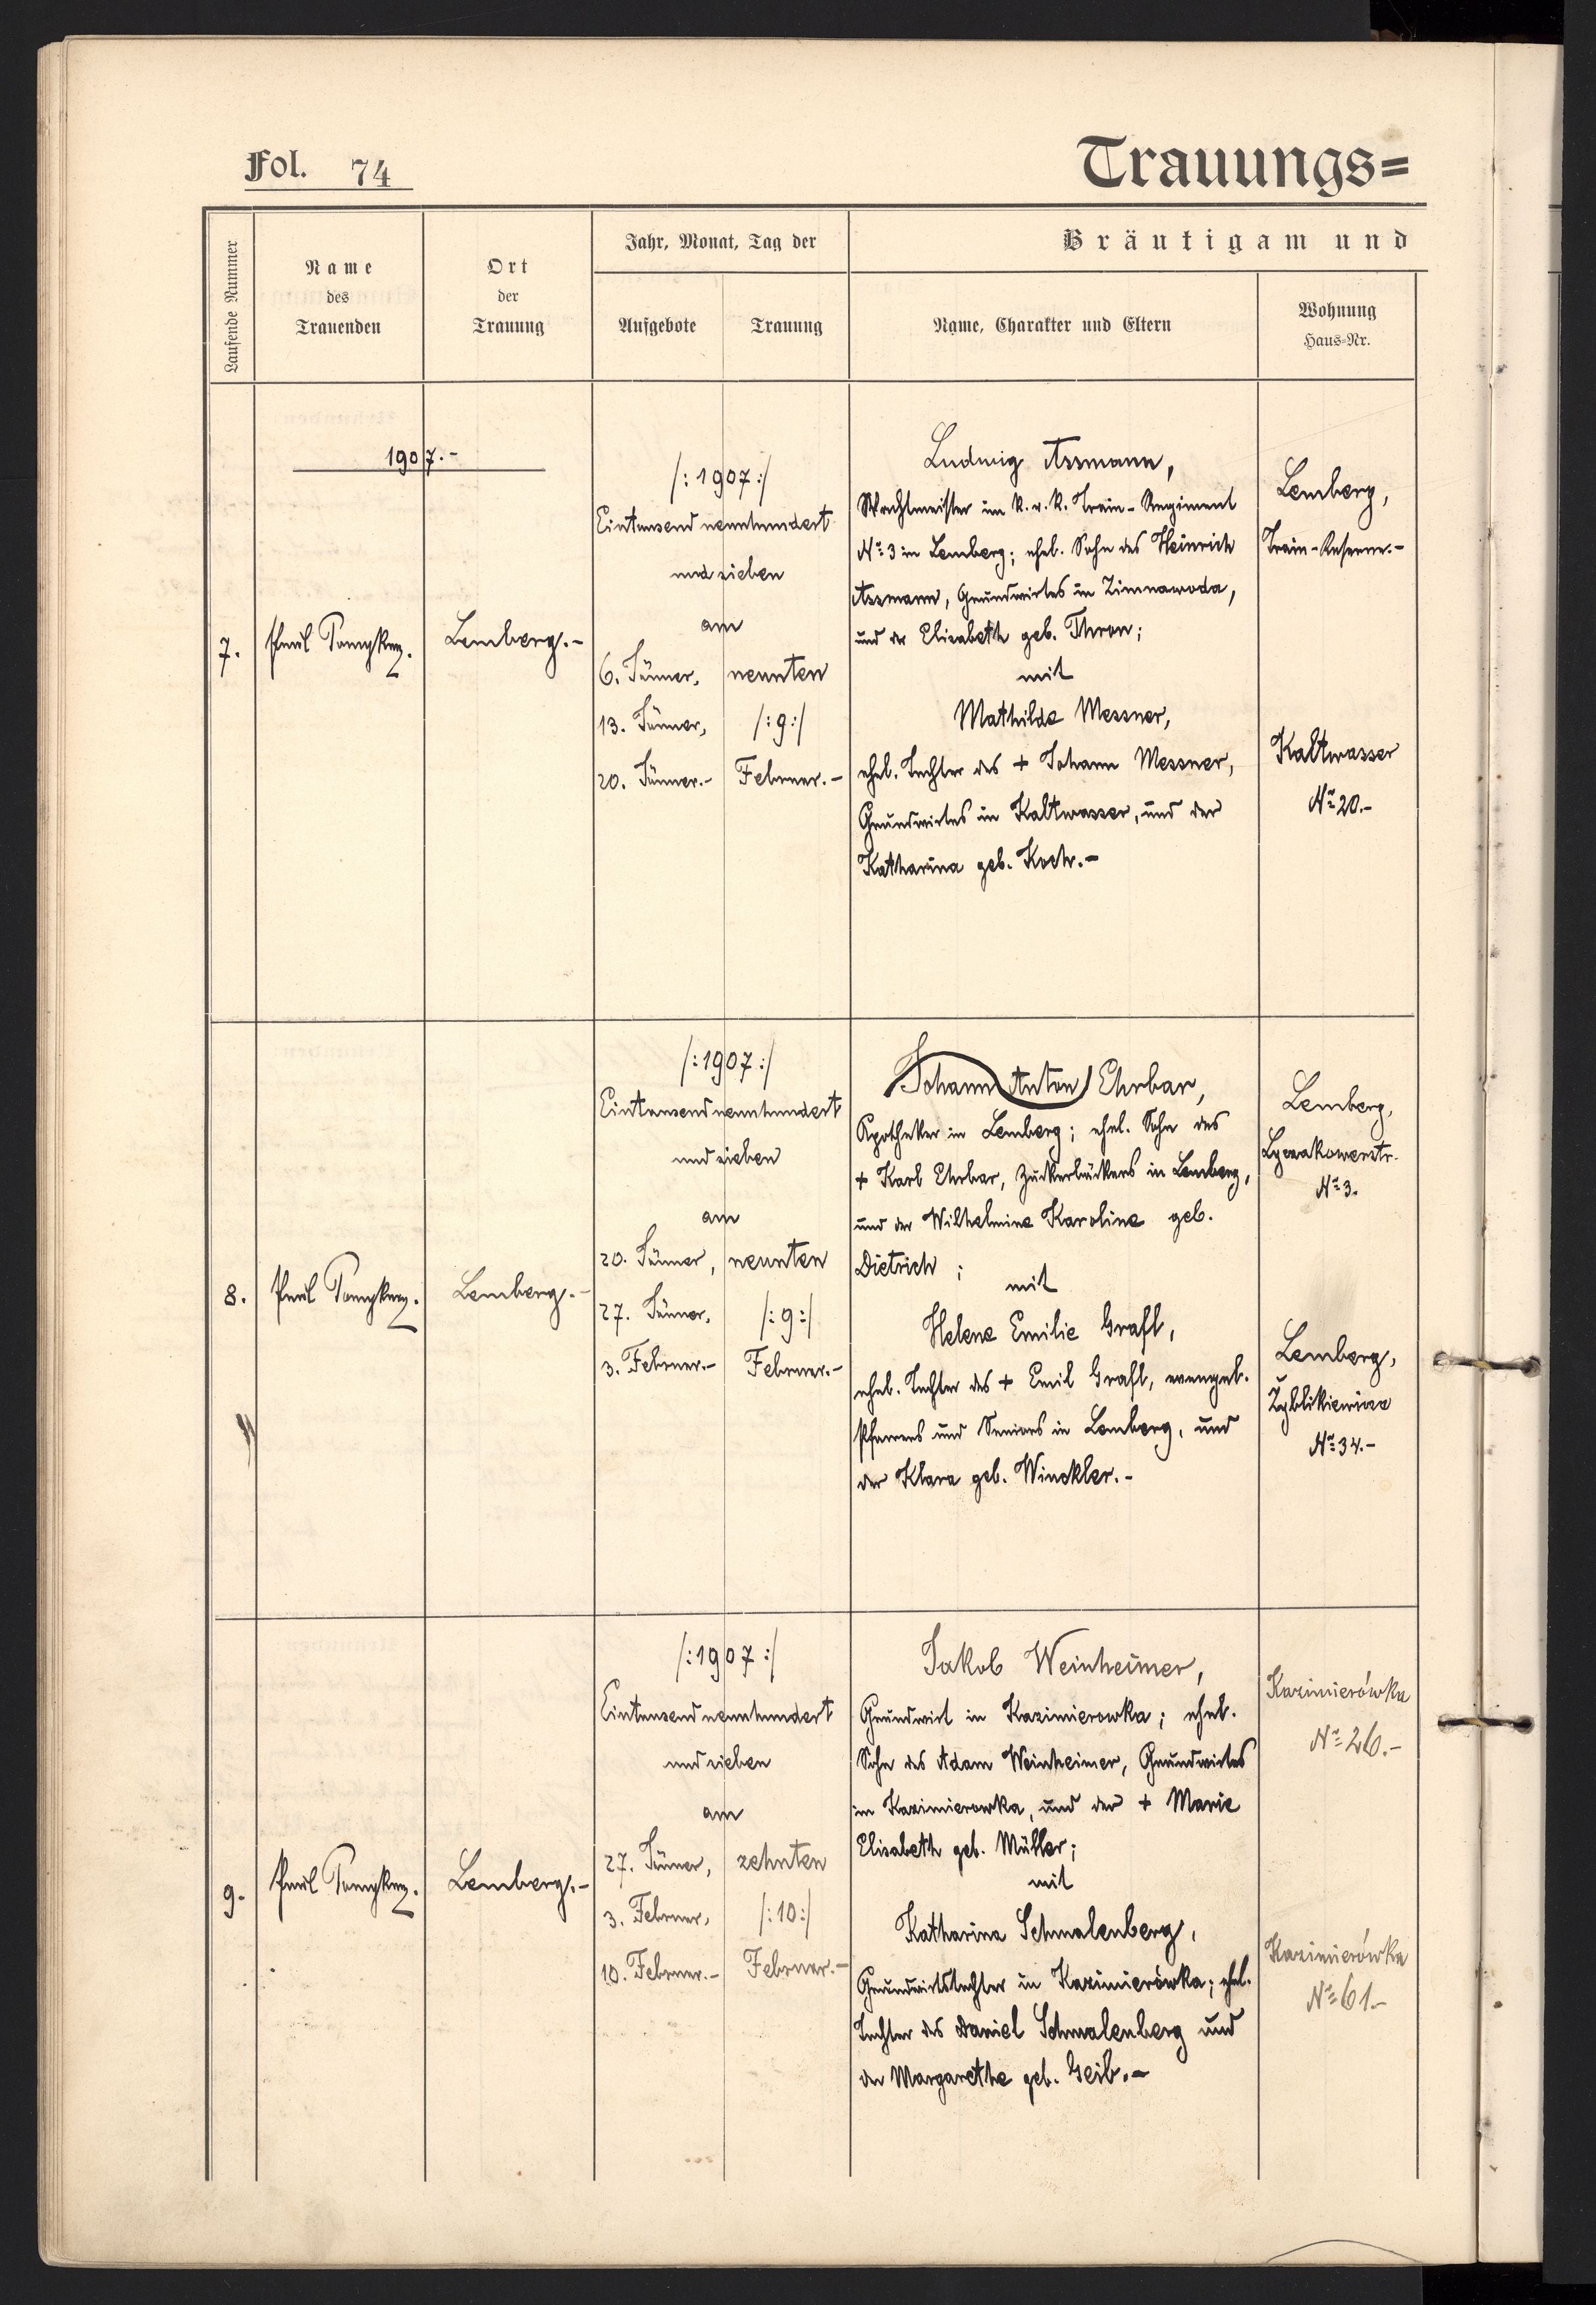 Fol. 74
Trauungs=
Laufende Nummer
Name
des
Trauenden
Ort
der
Trauung
Jahr, Monat, Tag der
Aufgebote
Trauung
Bräutigam und
Name, Charakter und Eltern
Wohnung
Haus=Nr.
1907.-
7.
Lemberg.-
/:1907:/
Eintausendneunhundert
und sieben
am
6. Jänner,
13. Jänner,
20. Jänner.-
neunten
/:9:/
Februar.-
Ludwig Assmann,
Wachtmeister im k. u. k. Train-Regiment
No 3 in Lemberg; ehel. Sohn des Heinrich
Assmann, Grundwirtes in Zimnawoda,
und der Elisabeth geb. Thron;
mit
Mathilde Messner,
ehel. Tochter des + Johann Messner,
Grundwirtes in Kaltwasser, und der
Katharina geb. Koch.-
Lemberg,
Train-
Kaltwasser
No 20.-
8.
Lemberg.-
/:1907:/
Eintausendneunhundert
und sieben
am
20. Jänner,
27. Jänner,
3. Februar.-
neunten
/:9:/
Februar.-
Johann Anton Ehrbar,
Apotheker in Lemberg; ehel. Sohn des
+ Karl Ehrbar, Zuckerbäckers in Lemberg,
und der Wilhelmine Karoline geb.
Dietrich;
mit
Helene Emilie Grafl,
ehel. Tochter des + Emil Grafl, evangel.
Pfarrers und Seniors in Lemberg, und
der Klara geb. Winckler.-
Lemberg,
Lyczakowerstr.
No 3.
Lemberg,
Zyblikiewicza
No 34.-
9.
Lemberg.-
/:1907:/
Eintausendneunhundert
und sieben
am
27. Jänner,
3. Februar,
10. Februar.-
zehnten
/:10:/
Februar.-
Jakob Weinheimer,
Grundwirt in Kazimierowka; ehel.
Sohn des Adam Weinheimer, Grundwirtes
in Kazimierowka, und der + Marie
Elisabeth geb. Müller;
mit
Katharina Schmalenberg,
Grundwirtstochter in Kazimierówka; ehel.
Tochter des Daniel Schmalenberg und
der Margarethe geb. Geib.-
Kazimierówka
No 26.-
Kazimierówka
No 61.-